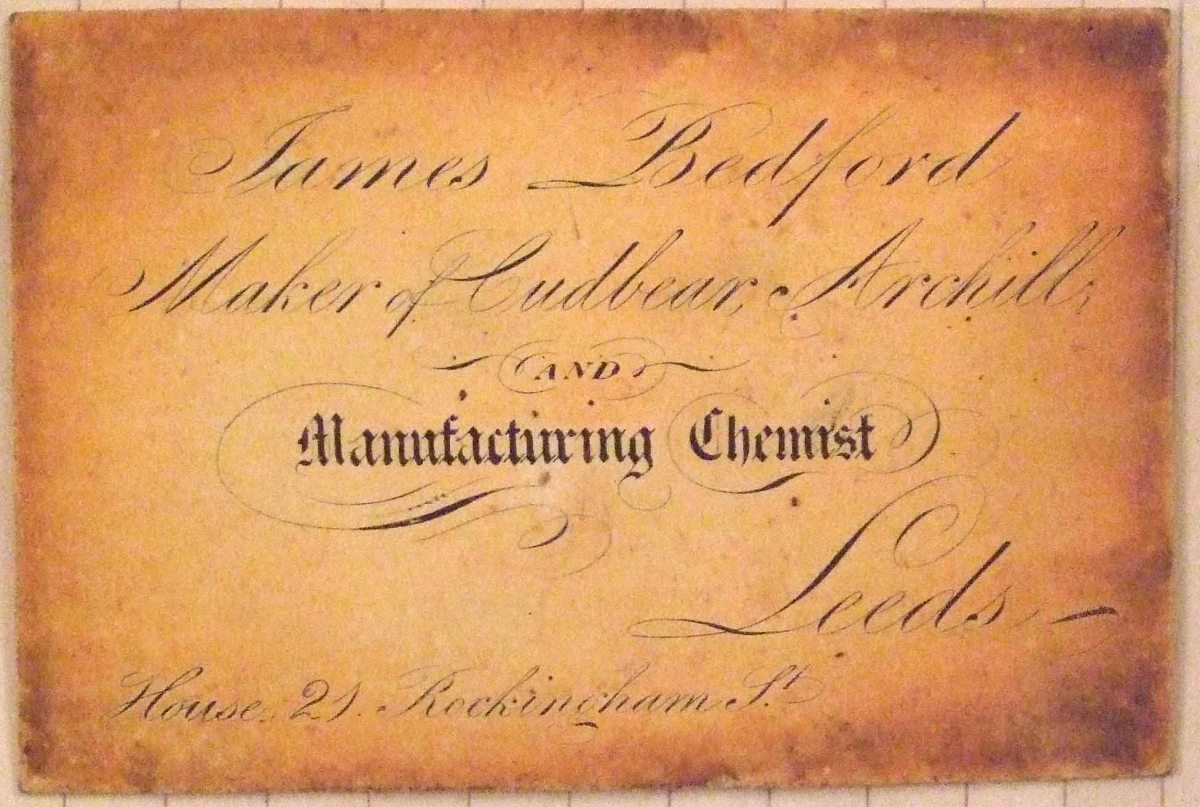 James Bedford
Maker of Cudbear, Archill,
AND
Manufacturing Chemist
Leeds
House. 21. Rockingham St.